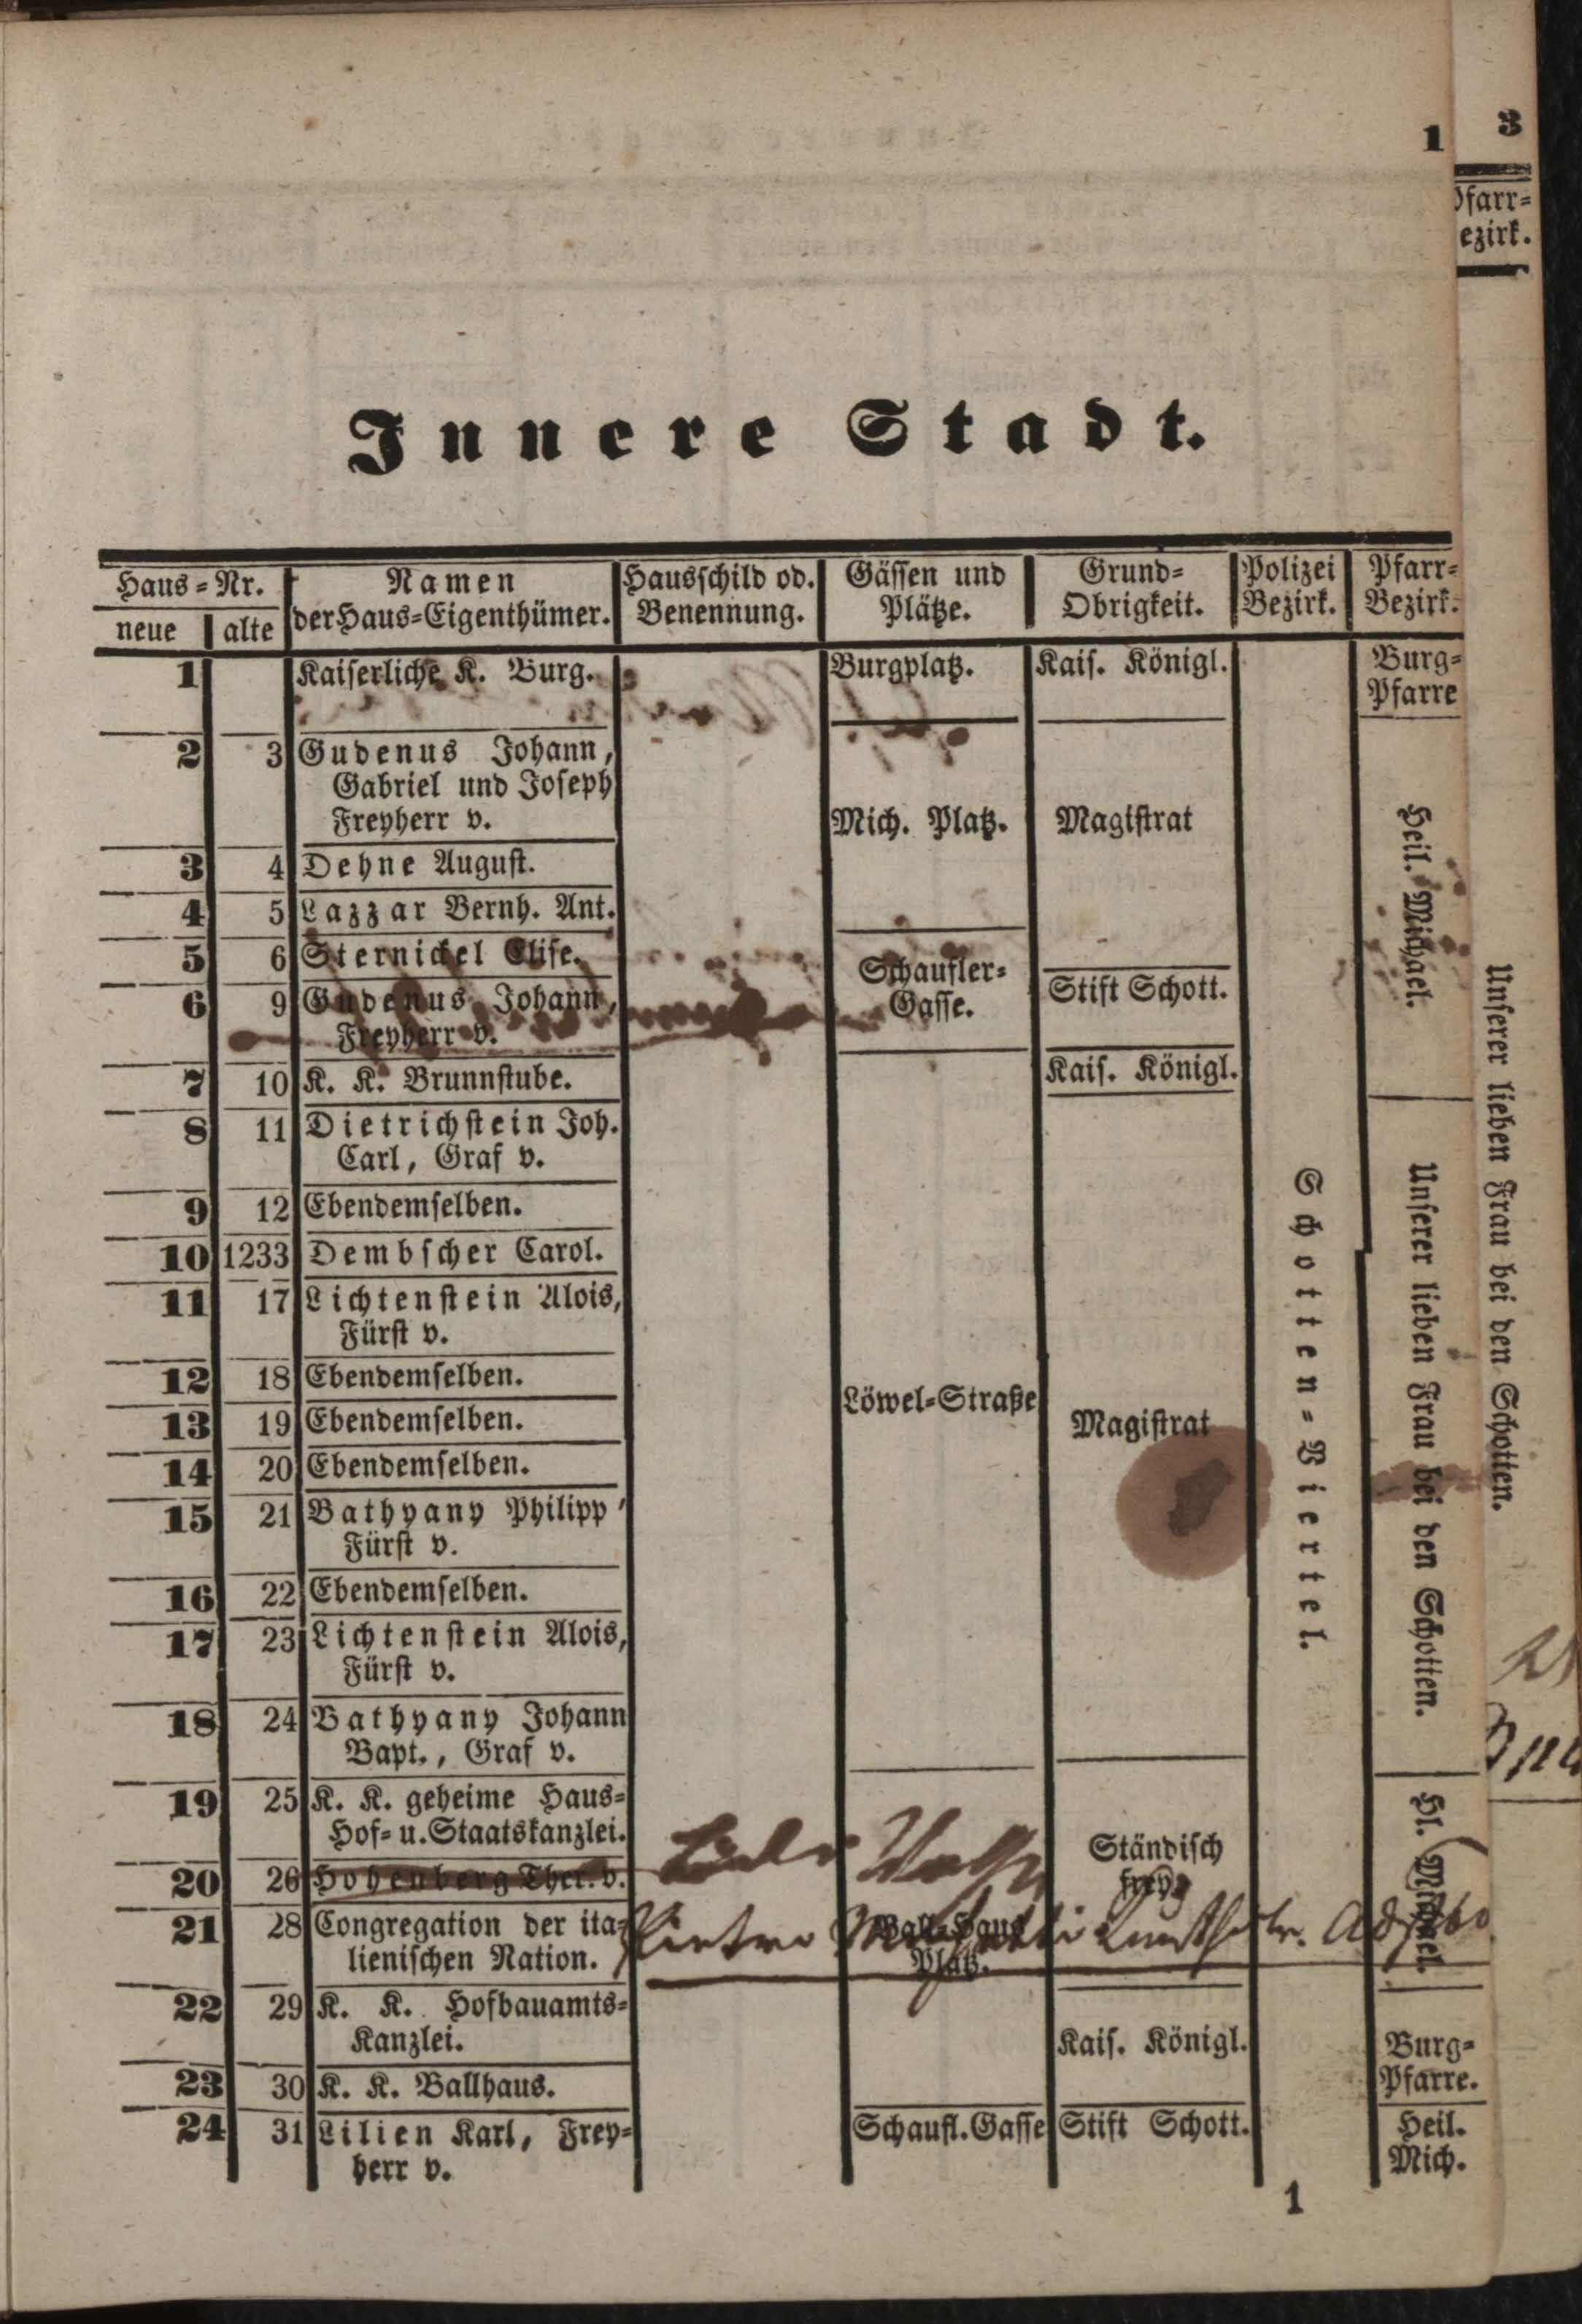 1
3
Pfarr=
ezirk.
Innere Stadt.
Haus=Nr.
neue alte
Namen
der Haus=Eigenthümer.
Hausschild od.
Benennung.
Gässen und
Plätze.
Grund=
Obrigkeit.
Polizei
Bezirk.
Pfarr=
Bezirk.
1 Kaiserliche K. Burg. Burgplatz. Kais. Königl. Burg=
Pfarre
2 3 Gudenus Johann,
Gabriel und Joseph
Freyherr v. Mich. Platz. Magistrat
3 4 Dehne August.
4 5 Lazzar Bernh. Ant.
5 6 Sternickel Elise. Schaufler=
Gasse.
6 9 Gudenus Johann, Stift Schott.
Freyherr v.
Heil. Michael.
7 10 K. K. Brunnstube. Kais. Königl.
8 11 Dietrichstein Joh.
Carl, Graf v.
9 12 Ebendemselben.
10 1233 Dembscher Carol.
11 17 Lichtenstein Alois,
Fürst v.
12 18 Ebendemselben.
13 19 Ebendemselben. Löwel=Straße Magistrat
14 20 Ebendemselben.
15 21 Bathyany Philipp
Fürst v.
16 22 Ebendemselben.
17 23 Lichtenstein Alois,
Fürst v.
18 24 Bathyany Johann
Bapt., Graf v.
Schotten=Viertel.
Unserer lieben Frau bei den Schotten.
Unserer lieben Frau bei den Schotten.
19 25 K. K. geheime Haus=
Hof= u. Staatskanzlei. Ständisch
frey
20 26 Hohenberg Ther. v.
21 28 Congregation der ita= Ball=Haus
lienischen Nation. Platz.
Pietro
Hl. Michael.
22 29 K. K. Hofbauamts=
Kanzlei. Kais. Königl. Burg=
Pfarre.
23 30 K. K. Ballhaus.
24 31 Lilien Karl, Frey= Schaufl. Gasse Stift Schott. Heil.
herr v. Mich.
1